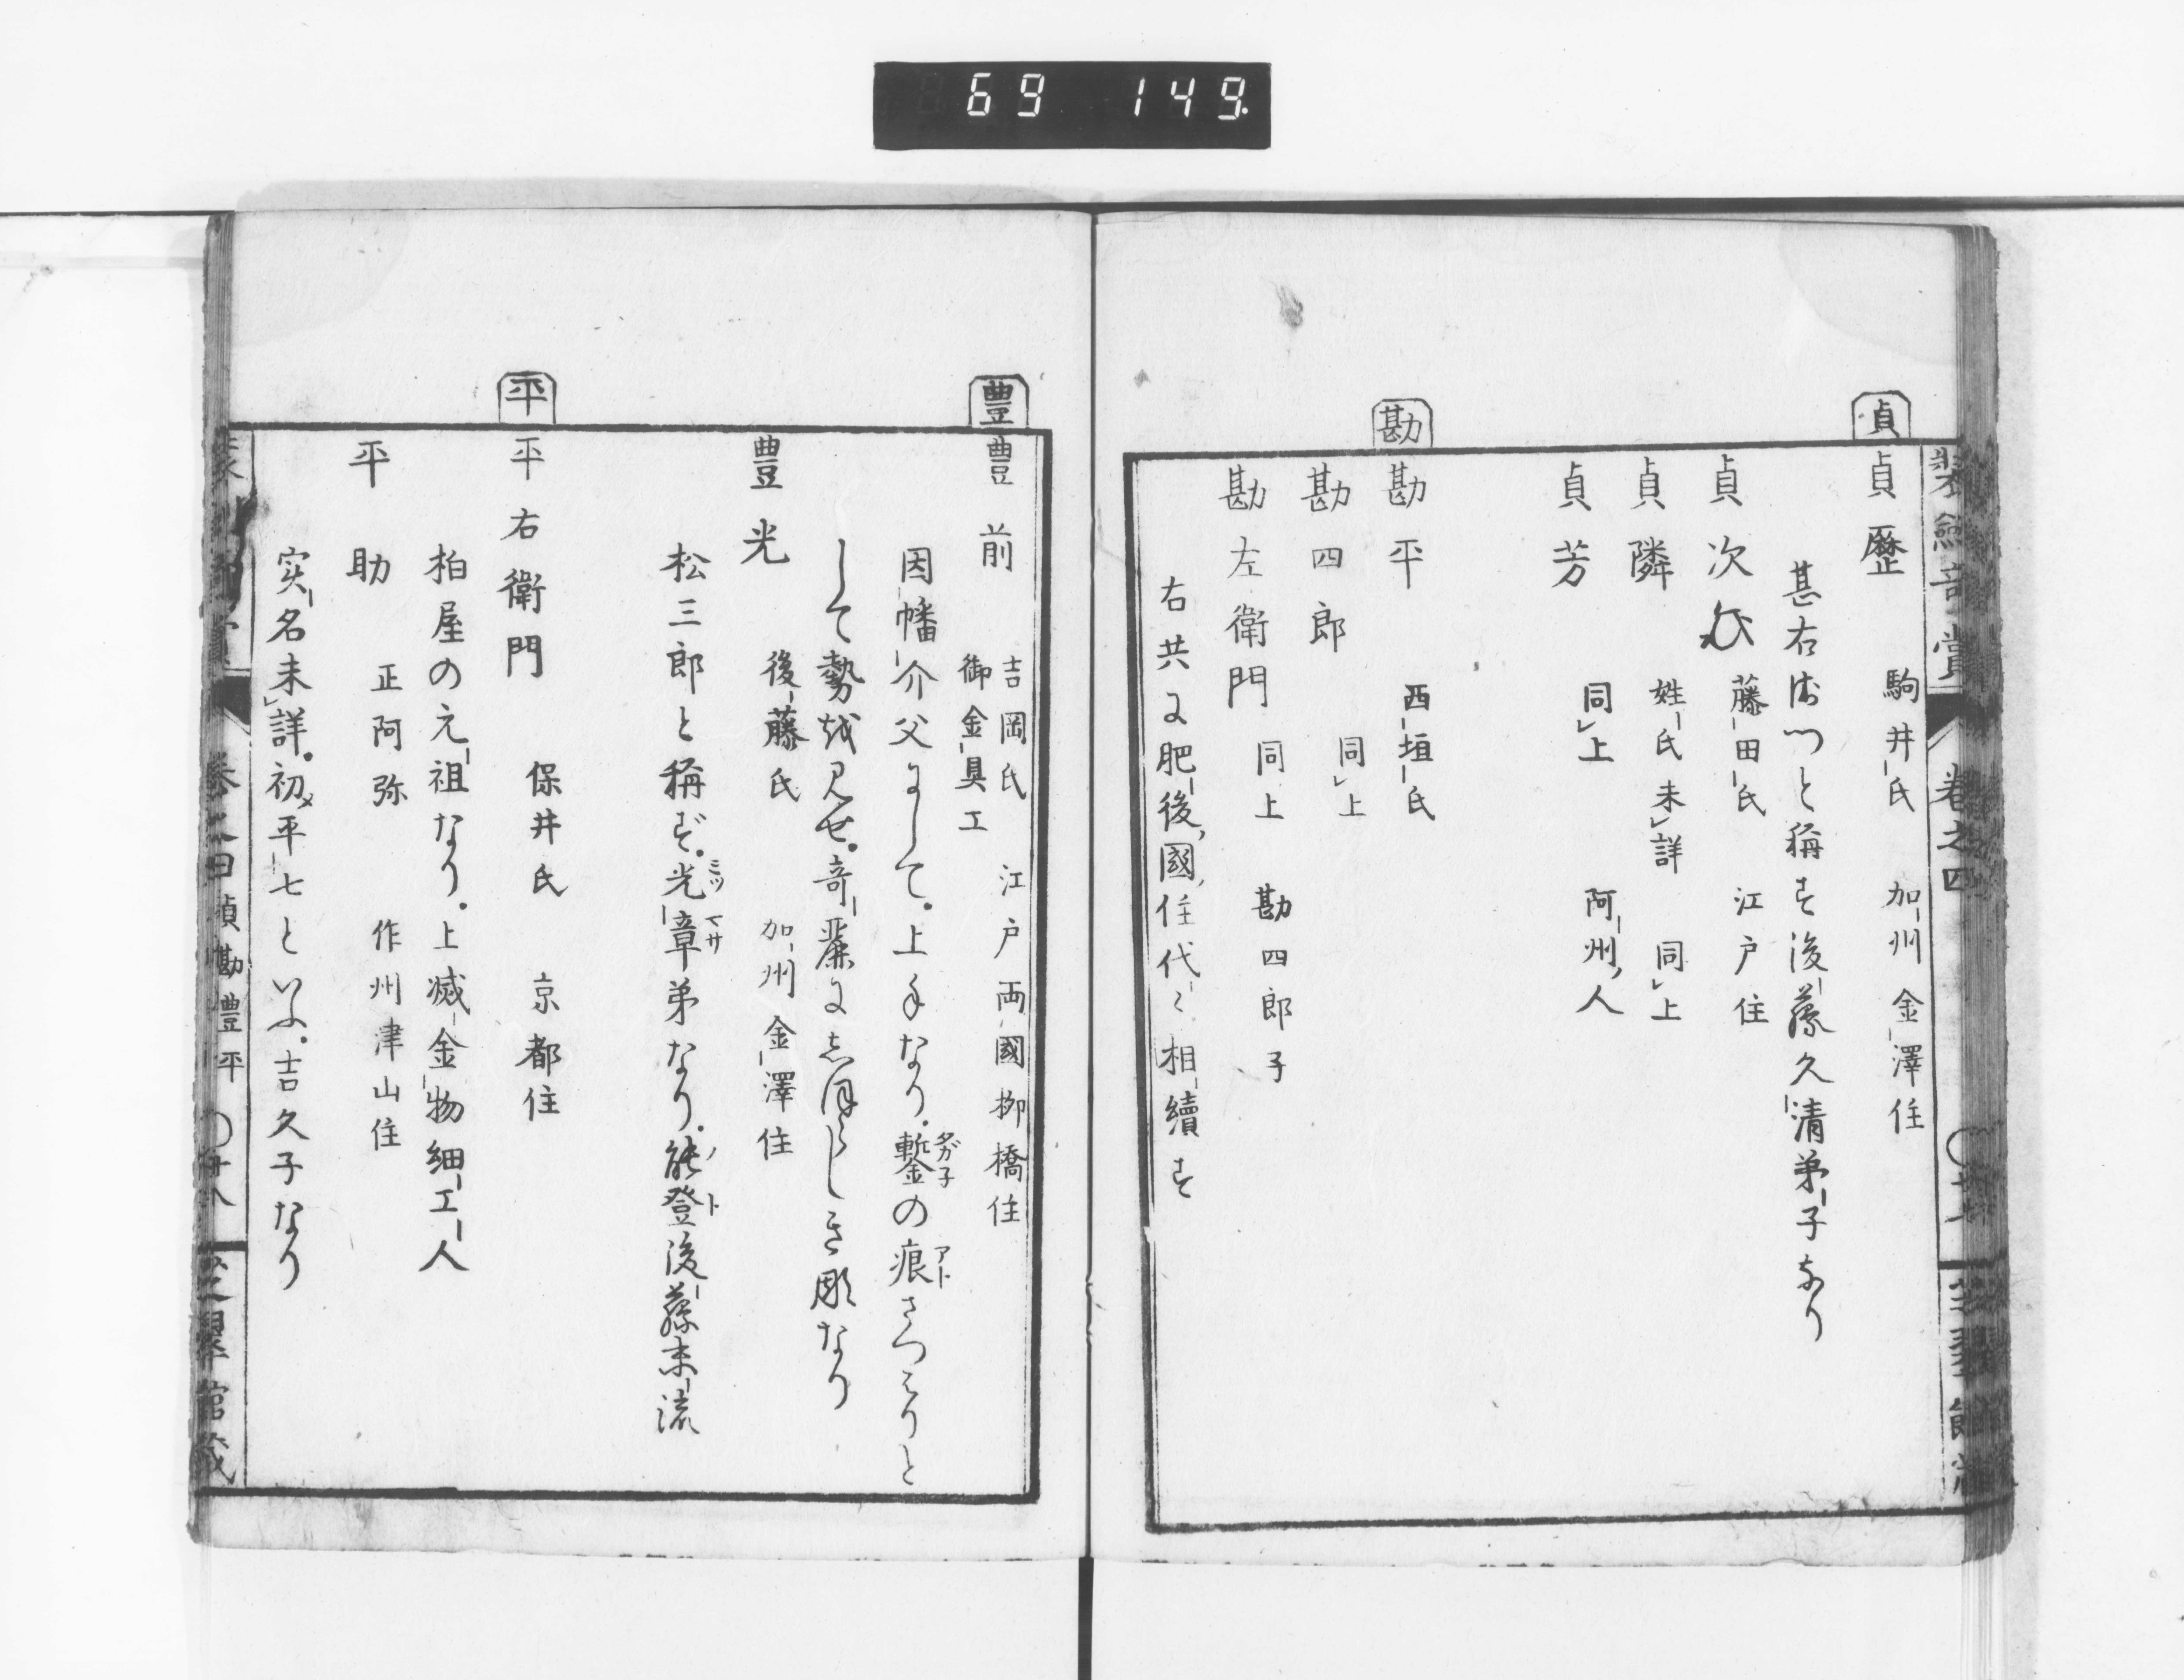 69 149.
貞
貞歴 駒井氏 加州金澤住
甚右衛門と称す後藤久清弟子なり
貞次 藤田氏 江戸住
貞隣 姓氏未詳 同上
貞芳 同上 阿州人
勘
勘平 西垣氏
勘四郎 同上
勘左衛門 同上 勘四郎子
右共に肥後國住代々相續す
豊
豊前 吉岡氏 江戸両國柳橋住
御金具工
因幡介父にして。上手なり。鏨の痕さつはりと
して勢越見せ。奇麗にしほらしき彫なり
豊光 後藤氏 加州金澤住
松三郎と称ず。光章弟なり。能登後藤末流
平
平右衛門 保井氏 京都住
柏屋の元祖なり。上滅金物細工人
平助 正阿弥 作州津山住
実名未詳。初メ平七といふ。吉久子なり
装劔奇賞 巻之四
巻之四 貞勘豊平 〇廿八